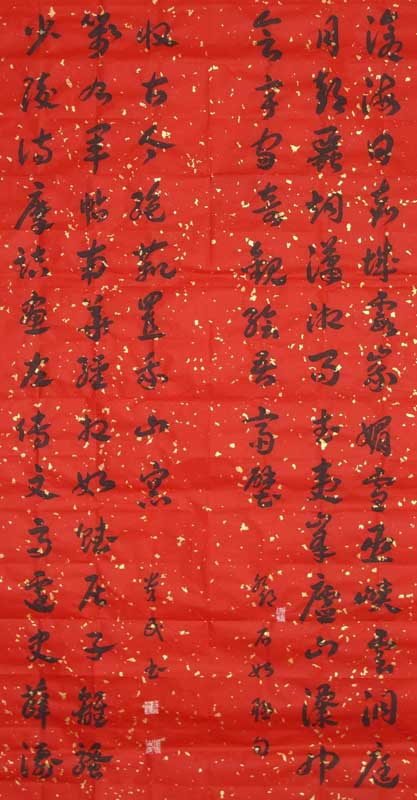 滄海日赤城霞峨嵋雪巫峽雲洞庭
月彭蠡烟瀟湘雨武夷峰廬山瀑布
合宇宙奇觀繪吾齋壁
鄧石如聯句
少陵詩摩詰畫左傳文馬遷史薛濤
箋右軍帖南華經相如賦屈子離騷
收古今絕藝置我山窗
民书